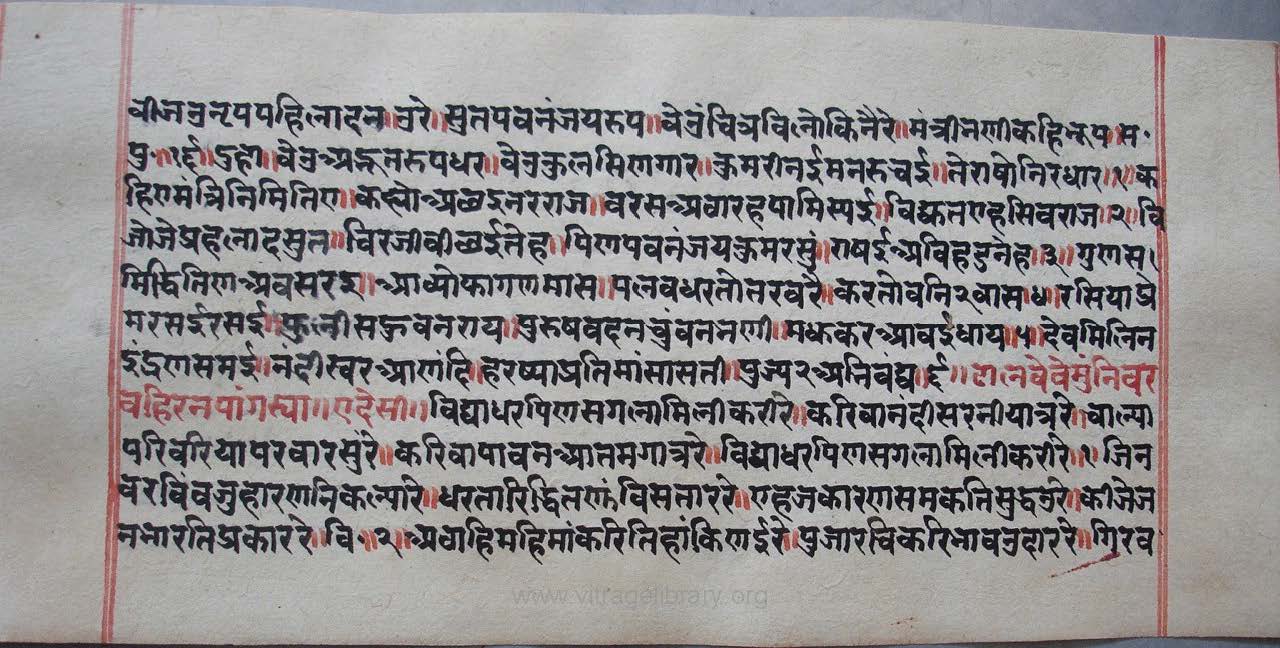 बीजउनृपपहिलादन॥उरे॥सुतपवनंजयरुप॥बेउंचित्रविलोकिनैरे॥मंत्रीनणीकहिनृप॥स॰
पु॰॥९६॥दुहा॥बेउअद्भुतरुपधर॥बेउकुलसिणगार॥कुमरीनईमनरुचई॥तेराषोनिरधार॥१॥क
हिणमंत्रिनिमितिए॥कह्योअछइनरराज॥वरसअढारहपामिस्यई॥विद्धुतएहसिवराज॥२॥चि
जोजेप्रहलादसुत॥चिरजीवीछईतेह॥पिणपवनंजयकुमरसुं॥राषईअविहडनेह॥३॥गुणस
मिद्धितिणअवसरइ॥आव्योफागणमास॥पलवधरतोतरवरै॥करतोवनि२वास॥४॥रसियाप्रे
मरसईरसई॥फुलीसहुवनराय॥पुरुषवदनचुंबनभणी॥मधुकरआवईधाय॥५॥देवमिलिन
इंद्रणसमई॥नंदीस्वरआणंदि॥हरष्याप्रतिमांसासती॥पुज्य२अनिवंद्य॥६॥ढालवैवैमुंनिवर
वहिरनपांगस्या॥एदेसी॥विद्याधरपिणसगलामिलीकरीरे॥करिवानंदीसरनीयात्ररे॥चाल्या
परिवरियापरवारसुंरे॥करिवापावनआतमगात्ररे॥विद्याधरपिणसगलामिलीकरीरे॥१॥जिन
वरविंवजुहारणनिकल्यारे॥धरतारिद्धितणांविसताररे॥एहजकारणसमकतिसुद्धउरे॥कीजेज
नभारतिप्रकाररे॥वि॰॥२॥अठाहिमहिमांकरितिहांकिणईरे॥पुजारचिकरिभावउदाररे॥गिरव
www.vitragelibrary.org